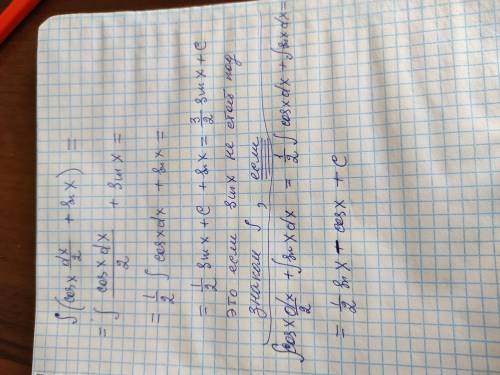 ∫(cosx dx/2 + sin x) =
= ∫ cosx dx/2 + sin x =
= 1/2 ∫ cosx dx + sin x =
= 1/2 sin x + C + sin x = 3/2 sin x + C
это если sin x не стоит под
знаком ∫, если
∫cosx dx/2 + ∫sin x dx = 1/2 ∫ cosx dx + ∫sin x dx =
= 1/2 sin x - cosx + C